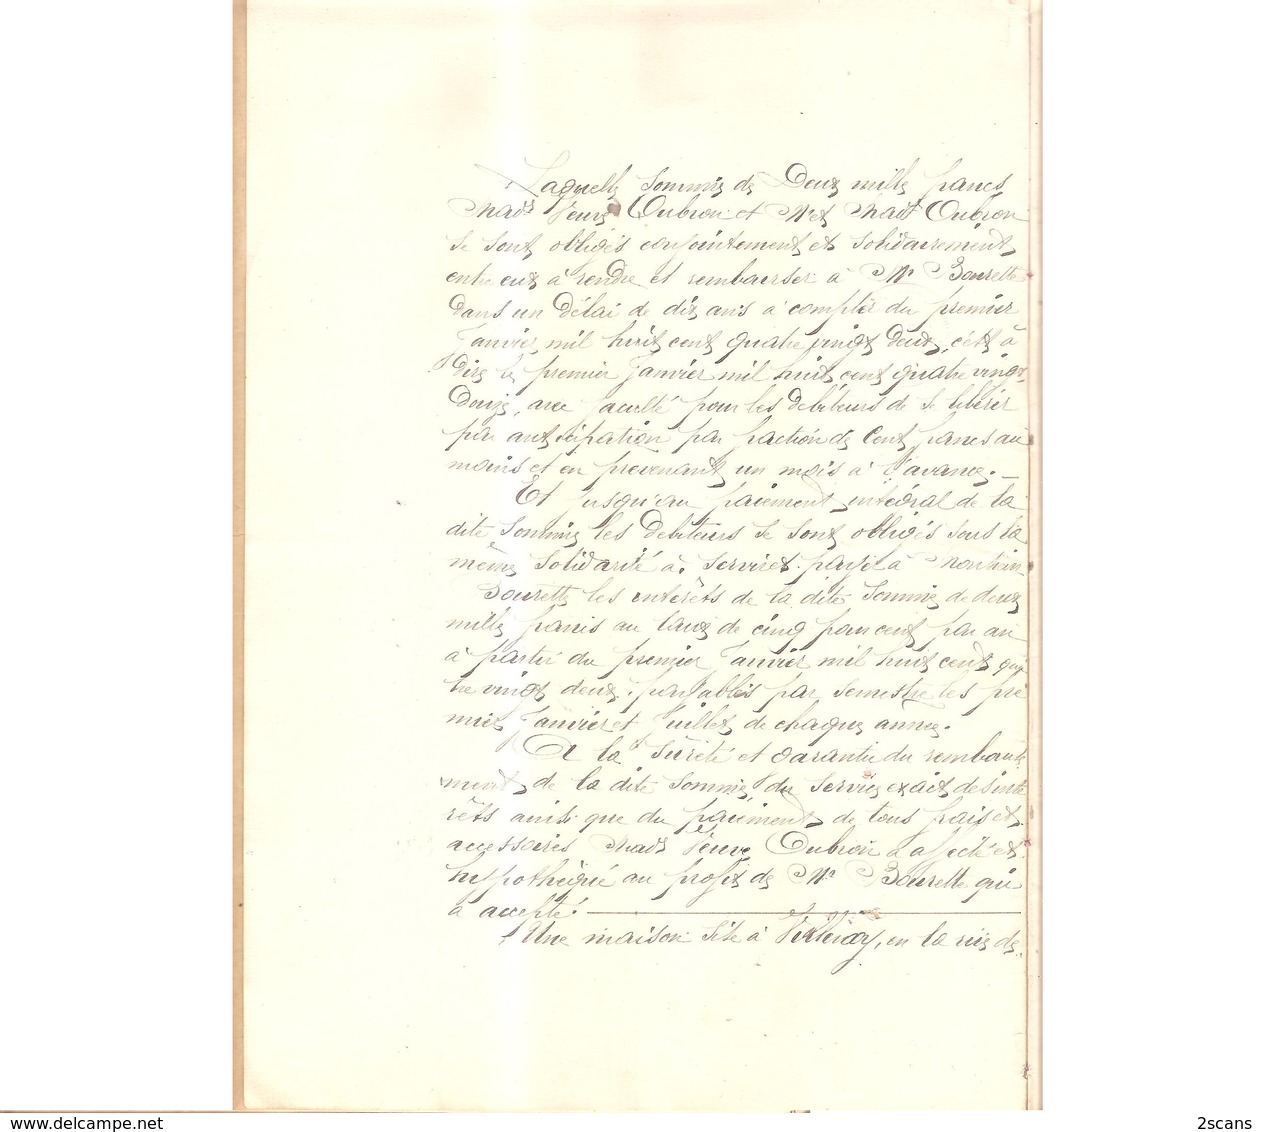 Laquelle somme de Deux mille francs
Made Veuve Oubron et Mr et Made Oubron
se sont obligés conjointement et solidairement
entre eux à rendre et rembourser à Mr Bourette
dans un délai de dix ans à compter du premier
Janvier mil huit cent quatre vingt deux, c'est à
dire le premier Janvier mil huit cent quatre vingt
Douze, avec faculté pour les debiteurs de se libérer
par anticipation par fraction de Cent francs au
moins et en prevenant un mois à l'avance.
Et jusqu'au paiement intégral de la
dite Somme les Debiteurs se sont obligés sous la
même Solidarité à servir et payer à Monsieur
Bourette les intérêts de la dite Somme de deux
mille francs au taux de cinq pour cent par an
à partir du premier Janvier mil huit cent qua
tre vingt deux, payables par semestre les pre
mier Janvier et Juillet de chaque année.
A la Sûreté et Garantie du rembourse
ment de la dite Somme, du service exact des inté
rêts ainsi que du paiement de tous frais et
accessoires Made Veuve Oubron a affecté et
hypothéqué au profit de Mr Bourette qui
a accepté.
Une maison Sise à Verzenay, en la rue de
2scans